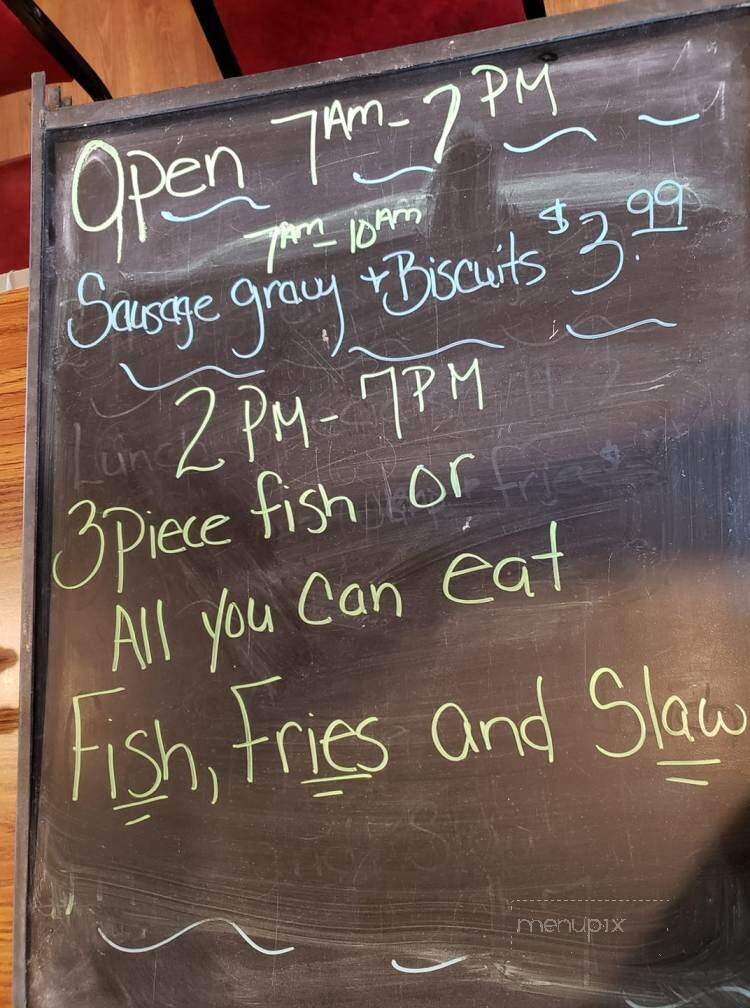 Open 7AM - 7PM
7AM - 10AM
Sausage gravy + Biscuits $3.99
2PM - 7PM
3 piece fish or
All you can eat
Fish, Fries and Slaw
menupix